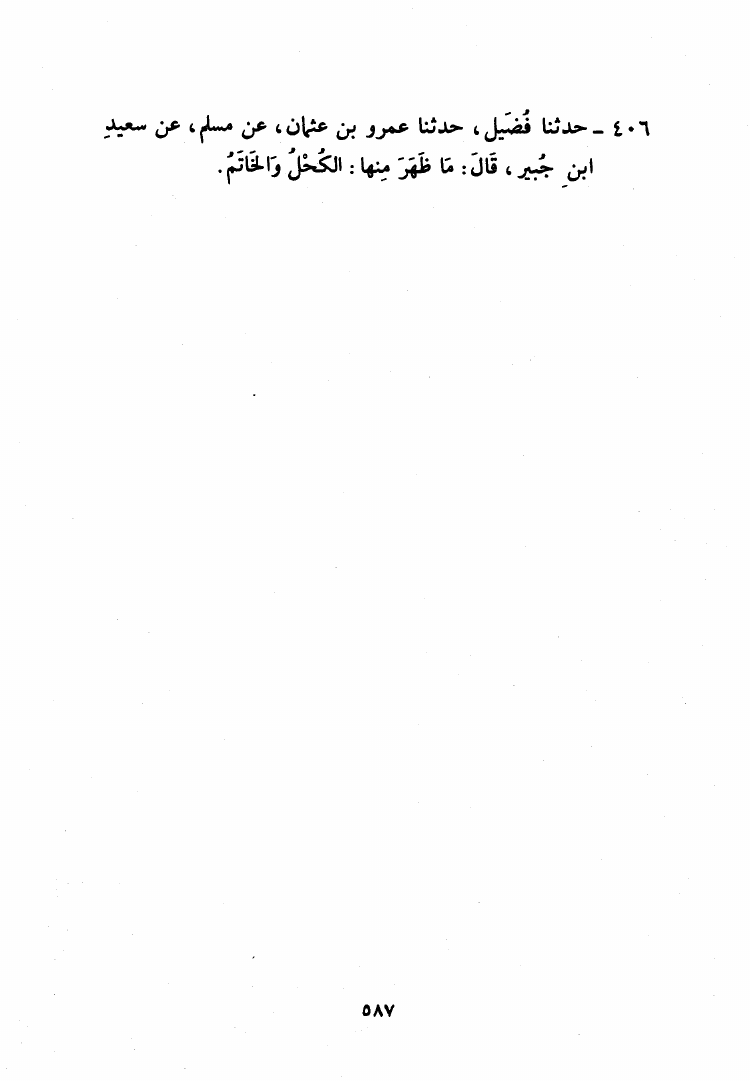 ٤٠٦ ـ حدثنا فُضَيل، حدثنا عمرو بن عثمان، عن مسلم، عن سعيدِ
ابنِ جُبير، قَالَ: مَا ظَهَرَ مِنها: الكُحْلُ وَالخَاتَمُ.
٥٨٧